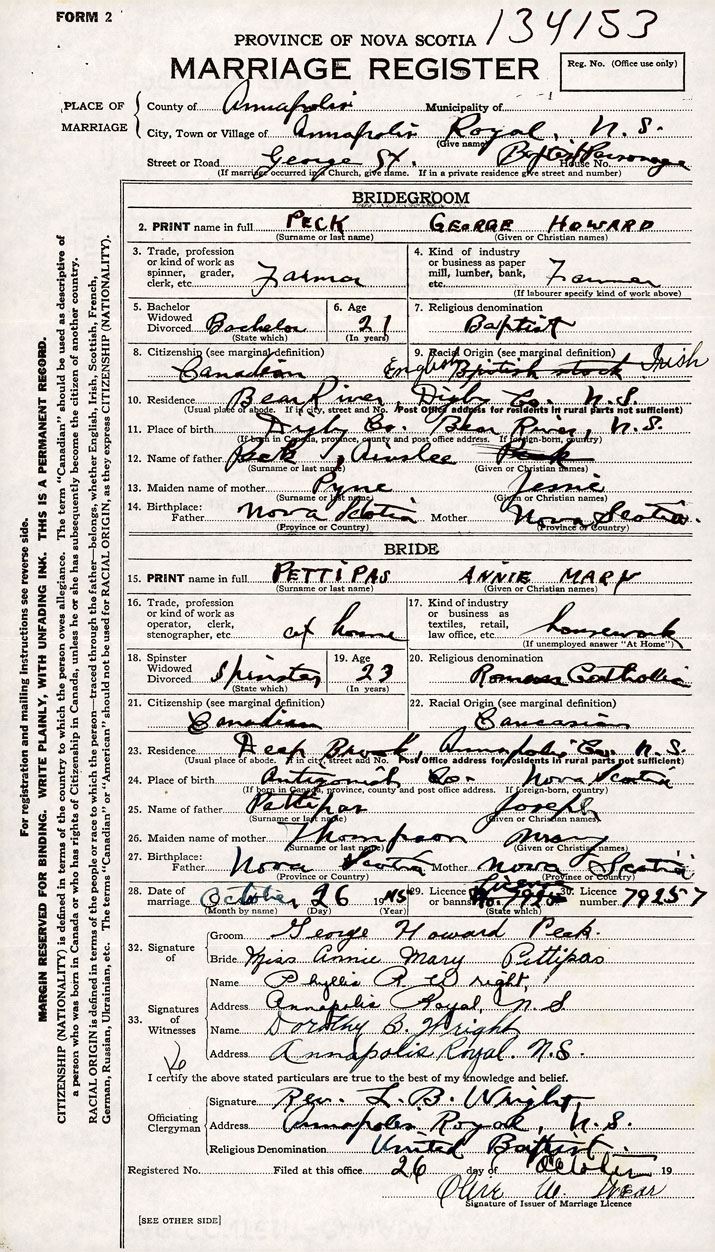 FORM 2
134153
PROVINCE OF NOVA SCOTIA
MARRIAGE REGISTER
Reg. No. (Office use only)
PLACE OF MARRIAGE
County of Annapolis Municipality of
City, Town or Village of Annapolis Royal, N. S.
(Give name)
Street or Road George St. House No. Baptist Parsonage
(If marriage occurred in a Church, give name. If in a private residence give street and number)
BRIDEGROOM
2. PRINT name in full PECK GEORGE HOWARD
(Surname or last name) (Given or Christian names)
3. Trade, profession or kind of work as spinner, grader, clerk, etc. Farmer
4. Kind of industry or business as paper mill, lumber, bank, etc. Farmer
(If labourer specify kind of work above)
5. Bachelor Widowed Divorced Bachelor (State which)
6. Age 21 (In years)
7. Religious denomination Baptist
8. Citizenship (see marginal definition) Canadian
9. Racial Origin (see marginal definition) English British stock Irish
10. Residence Bear River, Digby Co. N. S.
(Usual place of abode. If in city, street and No. Post Office address for residents in rural parts not sufficient)
11. Place of birth Digby Co. Bear River, N. S.
(If born in Canada, province, county and post office address. If foreign-born, country)
12. Name of father Peck, Ainslee Peck
(Surname or last name) (Given or Christian names)
13. Maiden name of mother Pyne Jessie
(Surname or last name) (Given or Christian names)
14. Birthplace: Father Nova Scotia Mother Nova Scotia.
(Province or Country) (Province or Country)
BRIDE
15. PRINT name in full PETTIPAS ANNIE MARY
(Surname or last name) (Given or Christian names)
16. Trade, profession or kind of work as operator, clerk, stenographer, etc. at home
17. Kind of industry or business as textiles, retail, law office, etc. housework
(If unemployed answer "At Home")
18. Spinster Widowed Divorced Spinster (State which)
19. Age 23 (In years)
20. Religious denomination Roman Catholic
21. Citizenship (see marginal definition) Canadian
22. Racial Origin (see marginal definition) Caucasian
23. Residence Deep Brook, Annapolis Co. N. S.
(Usual place of abode. If in city, street and No. Post Office address for residents in rural parts not sufficient)
24. Place of birth Antigonish Co. Nova Scotia
(If born in Canada, province, county and post office address. If foreign-born, country)
25. Name of father Pettipas Joseph
(Surname or last name) (Given or Christian names)
26. Maiden name of mother Thompson Mary
(Surname or last name) (Given or Christian names)
27. Birthplace: Father Nova Scotia Mother Nova Scotia
(Province or Country) (Province or Country)
28. Date of marriage October 26 19 45
(Month by name) (Day) (Year)
29. Licence or banns (State which)
30. Licence number 79257
32. Signature of
Groom George Howard Peck.
Bride Miss Annie Mary Pettipas
33. Signatures of Witnesses
Name Phyllis R. Wright,
Address Annapolis Royal, N. S.
Name Dorothy B. Wright
Address Annapolis Royal. N.S.
I certify the above stated particulars are true to the best of my knowledge and belief.
Officiating Clergyman
Signature Rev. L. B. Wright,
Address Annapolis Royal, N. S.
Religious Denomination United Baptist.
Registered No. Filed at this office 26 day of October 19
Olive W.
Signature of Issuer of Marriage Licence
[SEE OTHER SIDE]
For registration and mailing instructions see reverse side.
MARGIN RESERVED FOR BINDING. WRITE PLAINLY, WITH UNFADING INK. THIS IS A PERMANENT RECORD.
CITIZENSHIP (NATIONALITY) is defined in terms of the country to which the person owes allegiance. The term "Canadian" should be used as descriptive of
a person who was born in Canada or who has rights of Citizenship in Canada, unless he or she has subsequently become the citizen of another country.
RACIAL ORIGIN is defined in terms of the people or race to which the person—traced through the father—belongs, whether English, Irish, Scottish, French,
German, Russian, Ukrainian, etc. The terms "Canadian" or "American" should not be used for RACIAL ORIGIN, as they express CITIZENSHIP (NATIONALITY).